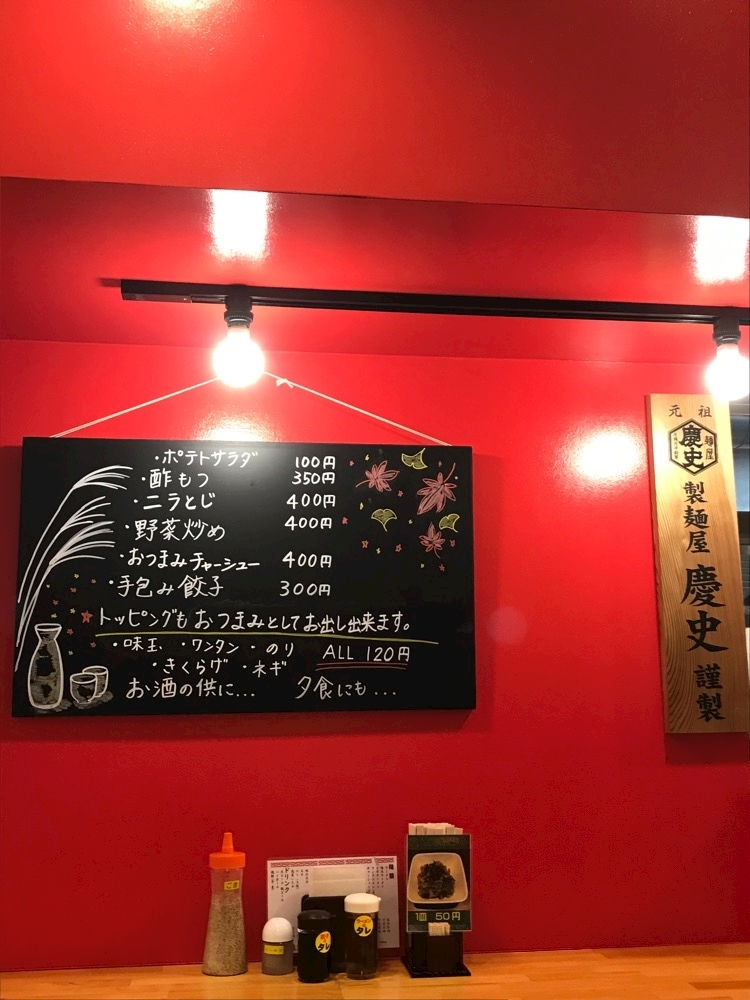 ・ポテトサラダ 100円
・酢もつ 350円
・ニラとじ 400円
・野菜炒め 400円
・おつまみチャーシュー 400円
・手包み餃子 300円
★トッピングもおつまみとしてお出し出来ます。
・味玉 ・ワンタン ・のり ALL 120円
・きくらげ ・ネギ
お酒の供に... 夕食にも...
元祖
麺屋
慶史
製麺屋 慶史 謹製
ドリンク
麺類
ごま
タレ
タレ
1皿 50円